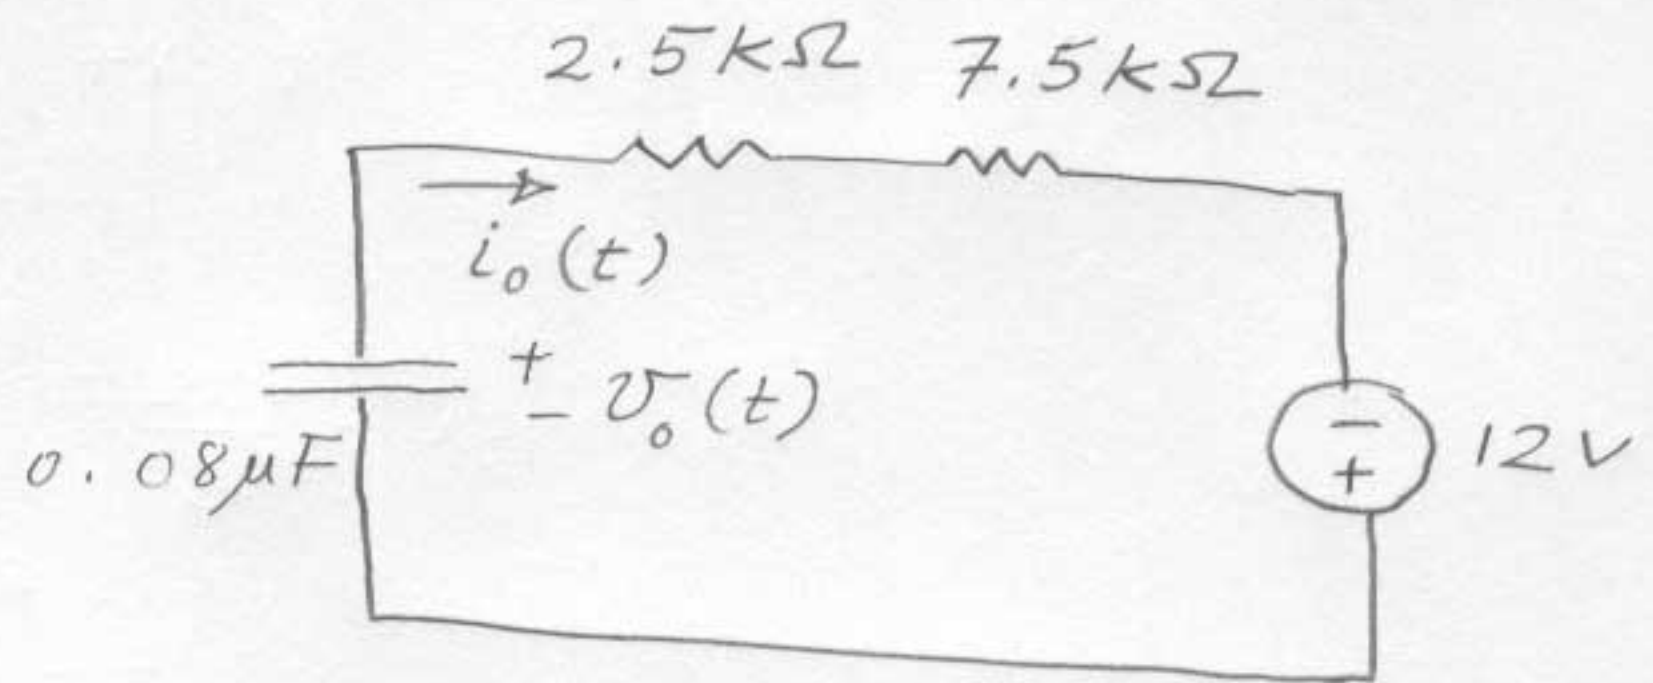 2.5kΩ 7.5kΩ
i₀(t)
+
- v₀(t)
0.08μF
-
+
12V